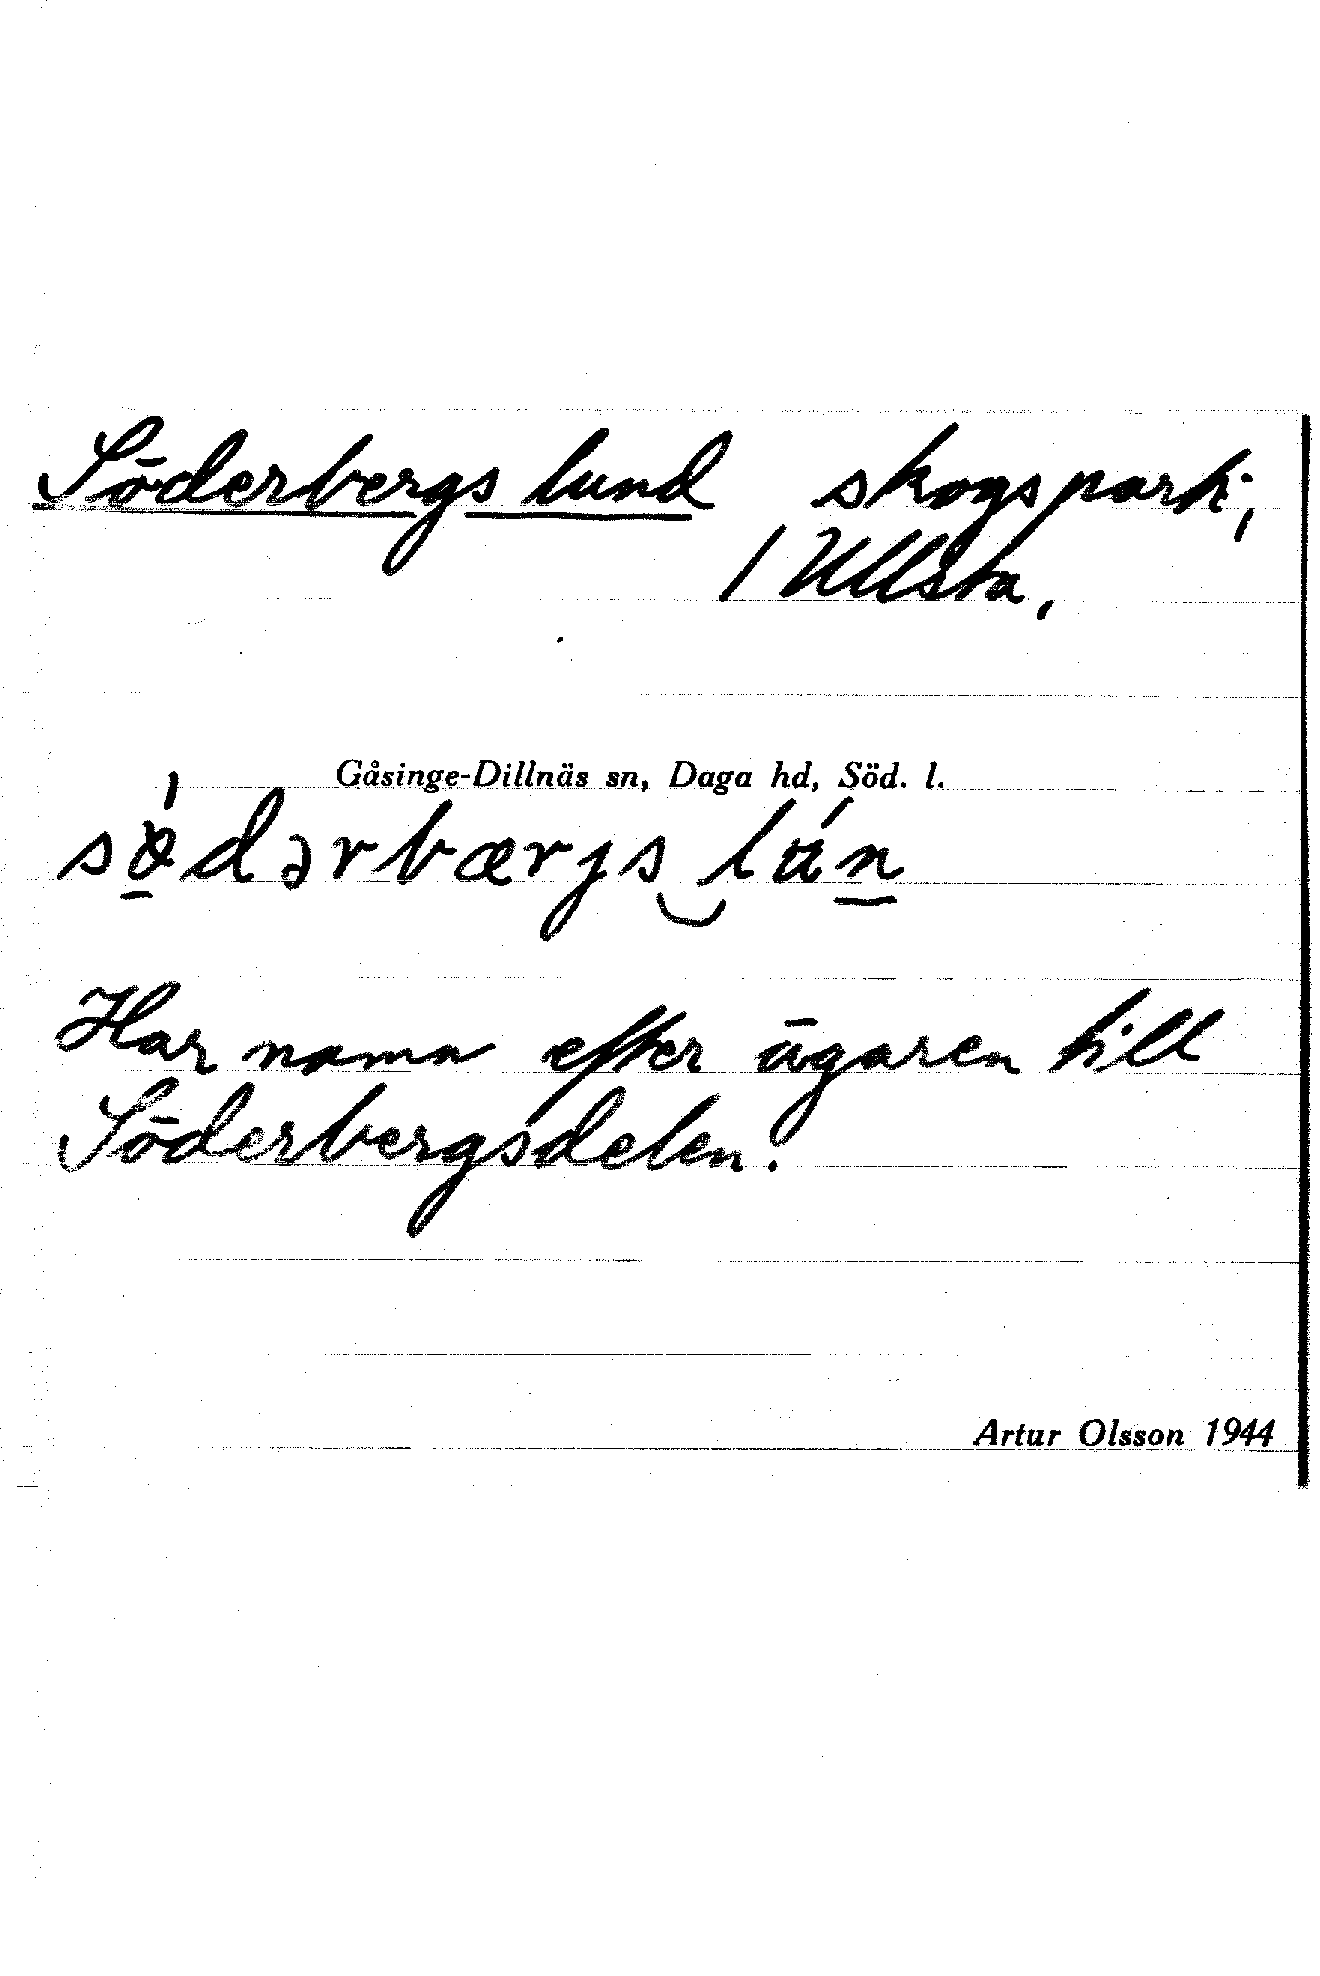 Söderbergs lund skogsparti,
/ Ullsta,
Gåsinge-Dillnäs sn, Daga hd, Söd. l.
sö̀dərbærjs‿lún
Har namn efter ägaren till
Söderbergsdelen.
Artur Olsson 1944